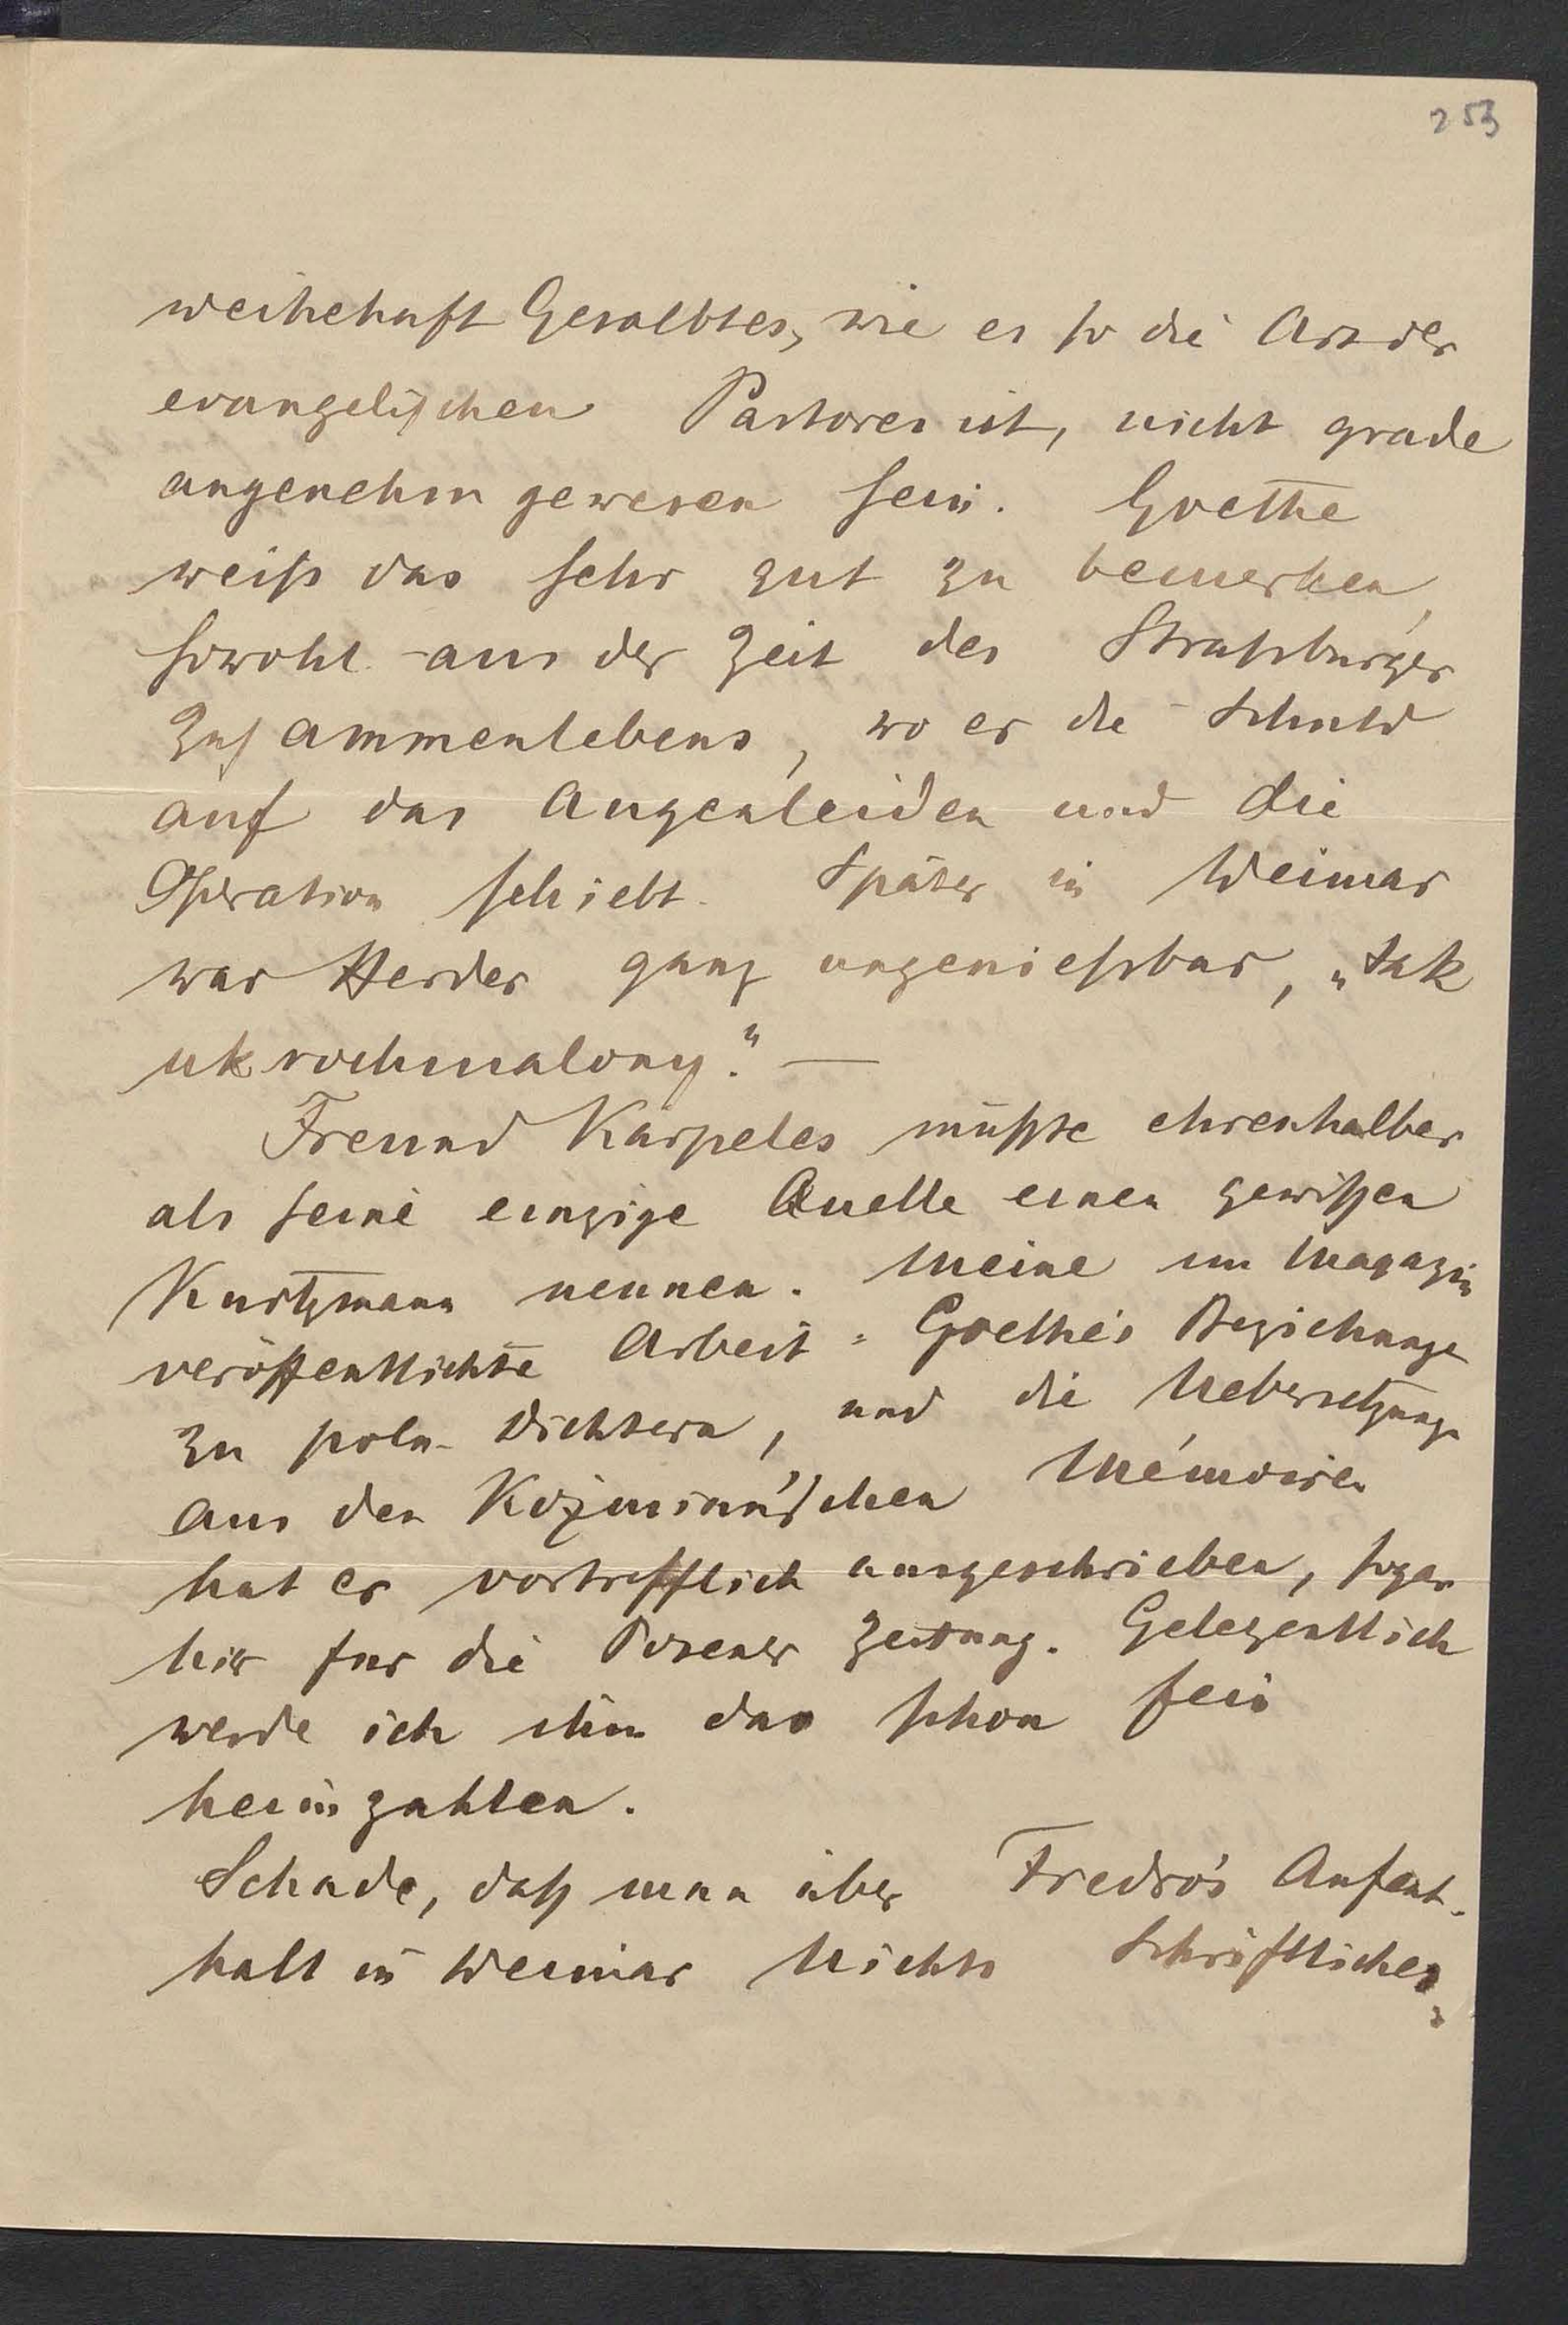 253
weihehaft Gesalbtes, wie es so die Art der
evangelischen Pastoren ist, nicht grade
angenehm gewesen sein. Goethe
weiß das sehr gut zu bemerken,
sowohl aus der Zeit des Straßburger
Zusammenlebens, wo er die Schuld
auf das Augenleiden und die
Operation schiebt. Später in Weimar
war Herder ganz ungenießbar, „tak
ukrochmalony." —
Freund Karpeles müßte ehrenhalber
als seine einzige Quelle einen gewißen
Kurtzmann nennen. Meine im Magazin
veröffentlichte Arbeit: Goethe's Beziehunge
zu poln. Dichtern, und die Uebersetzung
aus den Koźmian'schen Mémoiren
hat er vortrefflich ausgeschrieben, sogar
hier für die Posener Zeitung. Gelegentlich
werde ich ihm das schon fein
heimzahlen.
Schade, daß man über Fredro's Aufent-
halt in Weimar Nichts Schriftliches,